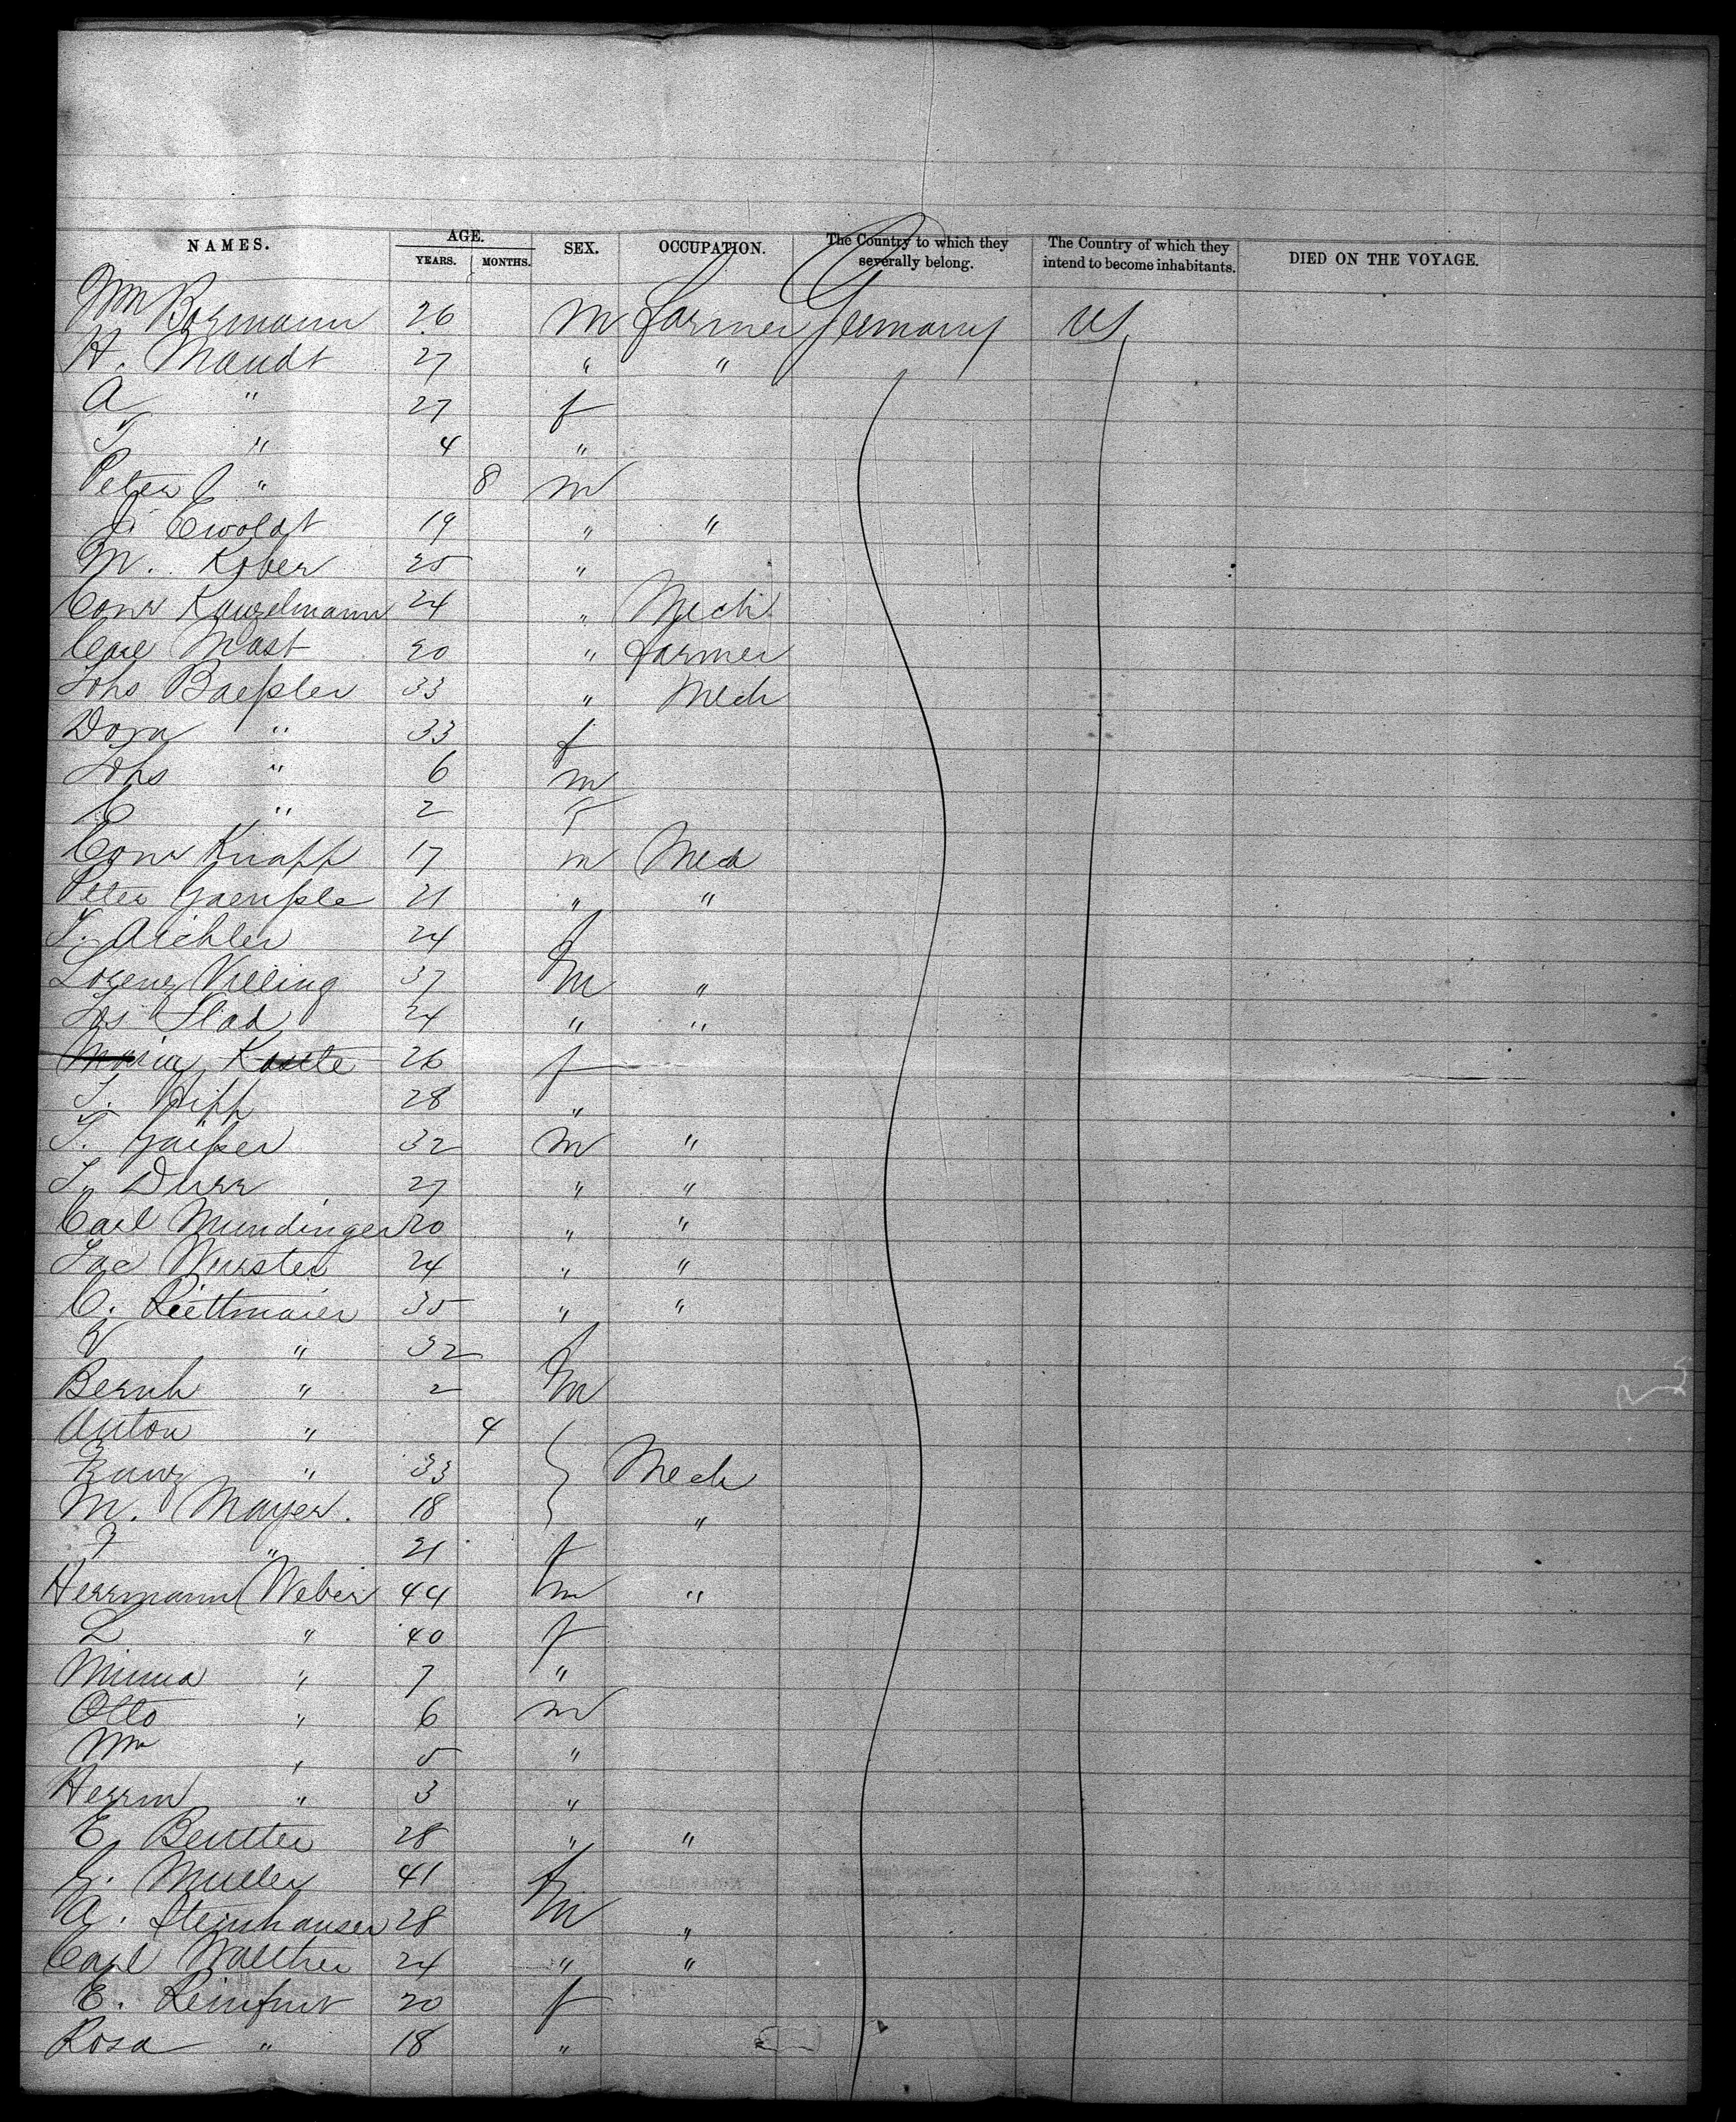 NAMES. AGE. SEX. OCCUPATION. The Country to which they severally belong. The Country of which they intend to become inhabitants. DIED ON THE VOYAGE.
YEARS. MONTHS.
Wm Bormann 26 m farmer Germany US
H. Mandt 27 " "
A " 27 f
" 4 "
Peter J " 8 m
Ewoldt 19 " "
M. Kober 25 "
Conr Kanzelmann 24 " Mech
Carl Mast 20 " farmer
Johs Baeßler 33 " Mech
Dora " 33 f
Johs " 6 m
C " 2 f
Conr Knapp 17 m Mech
Peter Gaenßle 21 " "
J. Aichler 24 f
Lorenz Villing 37 m "
Jos Flad 24 " "
Maria 26 f
J. Hipp 28 "
J. Gaißer 32 m "
J. Durr 27 " "
Carl Mundinger 20 " "
Jac Wurster 24 " "
C. Riettmaier 35 " "
V " 32 f
Bernh " 2 m
Anton " 4
Franz " 33 Mech
M. Mayer. 18 "
F " 21 f
Herrmann Weber 44 m "
L " 40 f
Minna " 7 "
Otto " 6 m
Wm " 5 "
Herrm " 3 "
E. Beutter 28 " "
Muller 41 f
A. Steinhauser 28 m "
Carl Walther 24 " "
E. Reinfurt 20 f
Rosa " 18 "